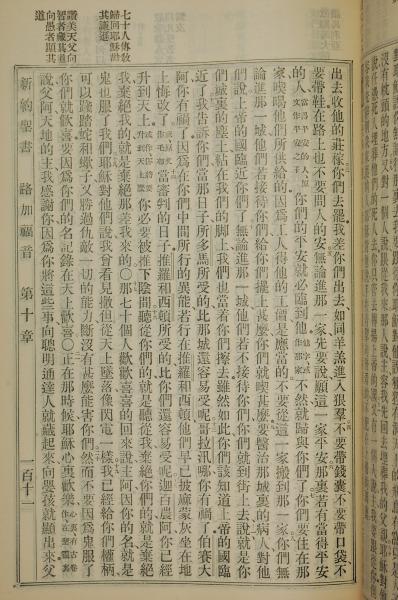 七十人傳敎
歸回耶穌勸
其謙遜
讚美天父向
智者藏其道
向愚者顯其
道
出去收他的莊稼你們去罷我差你們出去如同羊羔進入狼羣不要帶錢囊不要帶口袋不
要帶鞋在路上也不要問人的安無論進那一家先要說願這一家平安那裏若有當得平安
的人當得平安之人原文作平安之子你們的平安就必臨到他他或作那家不然就歸與你們了你們要住在那
家喫喝他們所供給的因爲工人得他的工價是應當的不要從這一家搬到那一家你們無
論進那一城他們若接待你們給你們擺上甚麼你們就喫甚麼要醫治那城裏的病人對他
們說上帝的國臨近你們了無論進那一城他們若不接待你們你們就到街上去說就是你
們城裏的塵土粘在我們的脚上我們也當着你們擦去雖然如此你們該知道上帝的國臨
近了我告訴你們當那日子所多馬所受的比那城還容易受呢哥拉汛哪你有禍了伯賽大
阿你有禍了因爲在你們中間所行的異能若行在推羅和西頓他們早已披麻蒙灰坐在地
上悔改了當審判的日子推羅和西頓所受的比你們還容易受呢迦百農阿你已經
升到天上你必要被推下陰間聽從你們的就是聽從我棄絕你們的就是棄絕
我棄絕我的就是棄絕那差我來的○那七十個人歡歡喜喜的回來說主阿因你的名就是
鬼也服了我們耶穌對他們說我曾看見撒但從天上墜落像閃電一樣我已經給你們權柄
可以踐踏蛇和蠍子又勝過仇敵一切的能力斷沒有甚麼能害你們然而不要因爲鬼服了
你們就歡喜要因爲你們的名記錄在天上歡喜○正在那時候耶穌心裏歡樂
說父阿天地的主我感謝你因爲你將這些事向聰明通達人就藏起來向嬰孩就顯出來父
新約聖書 路加福音 第十章 一百十一